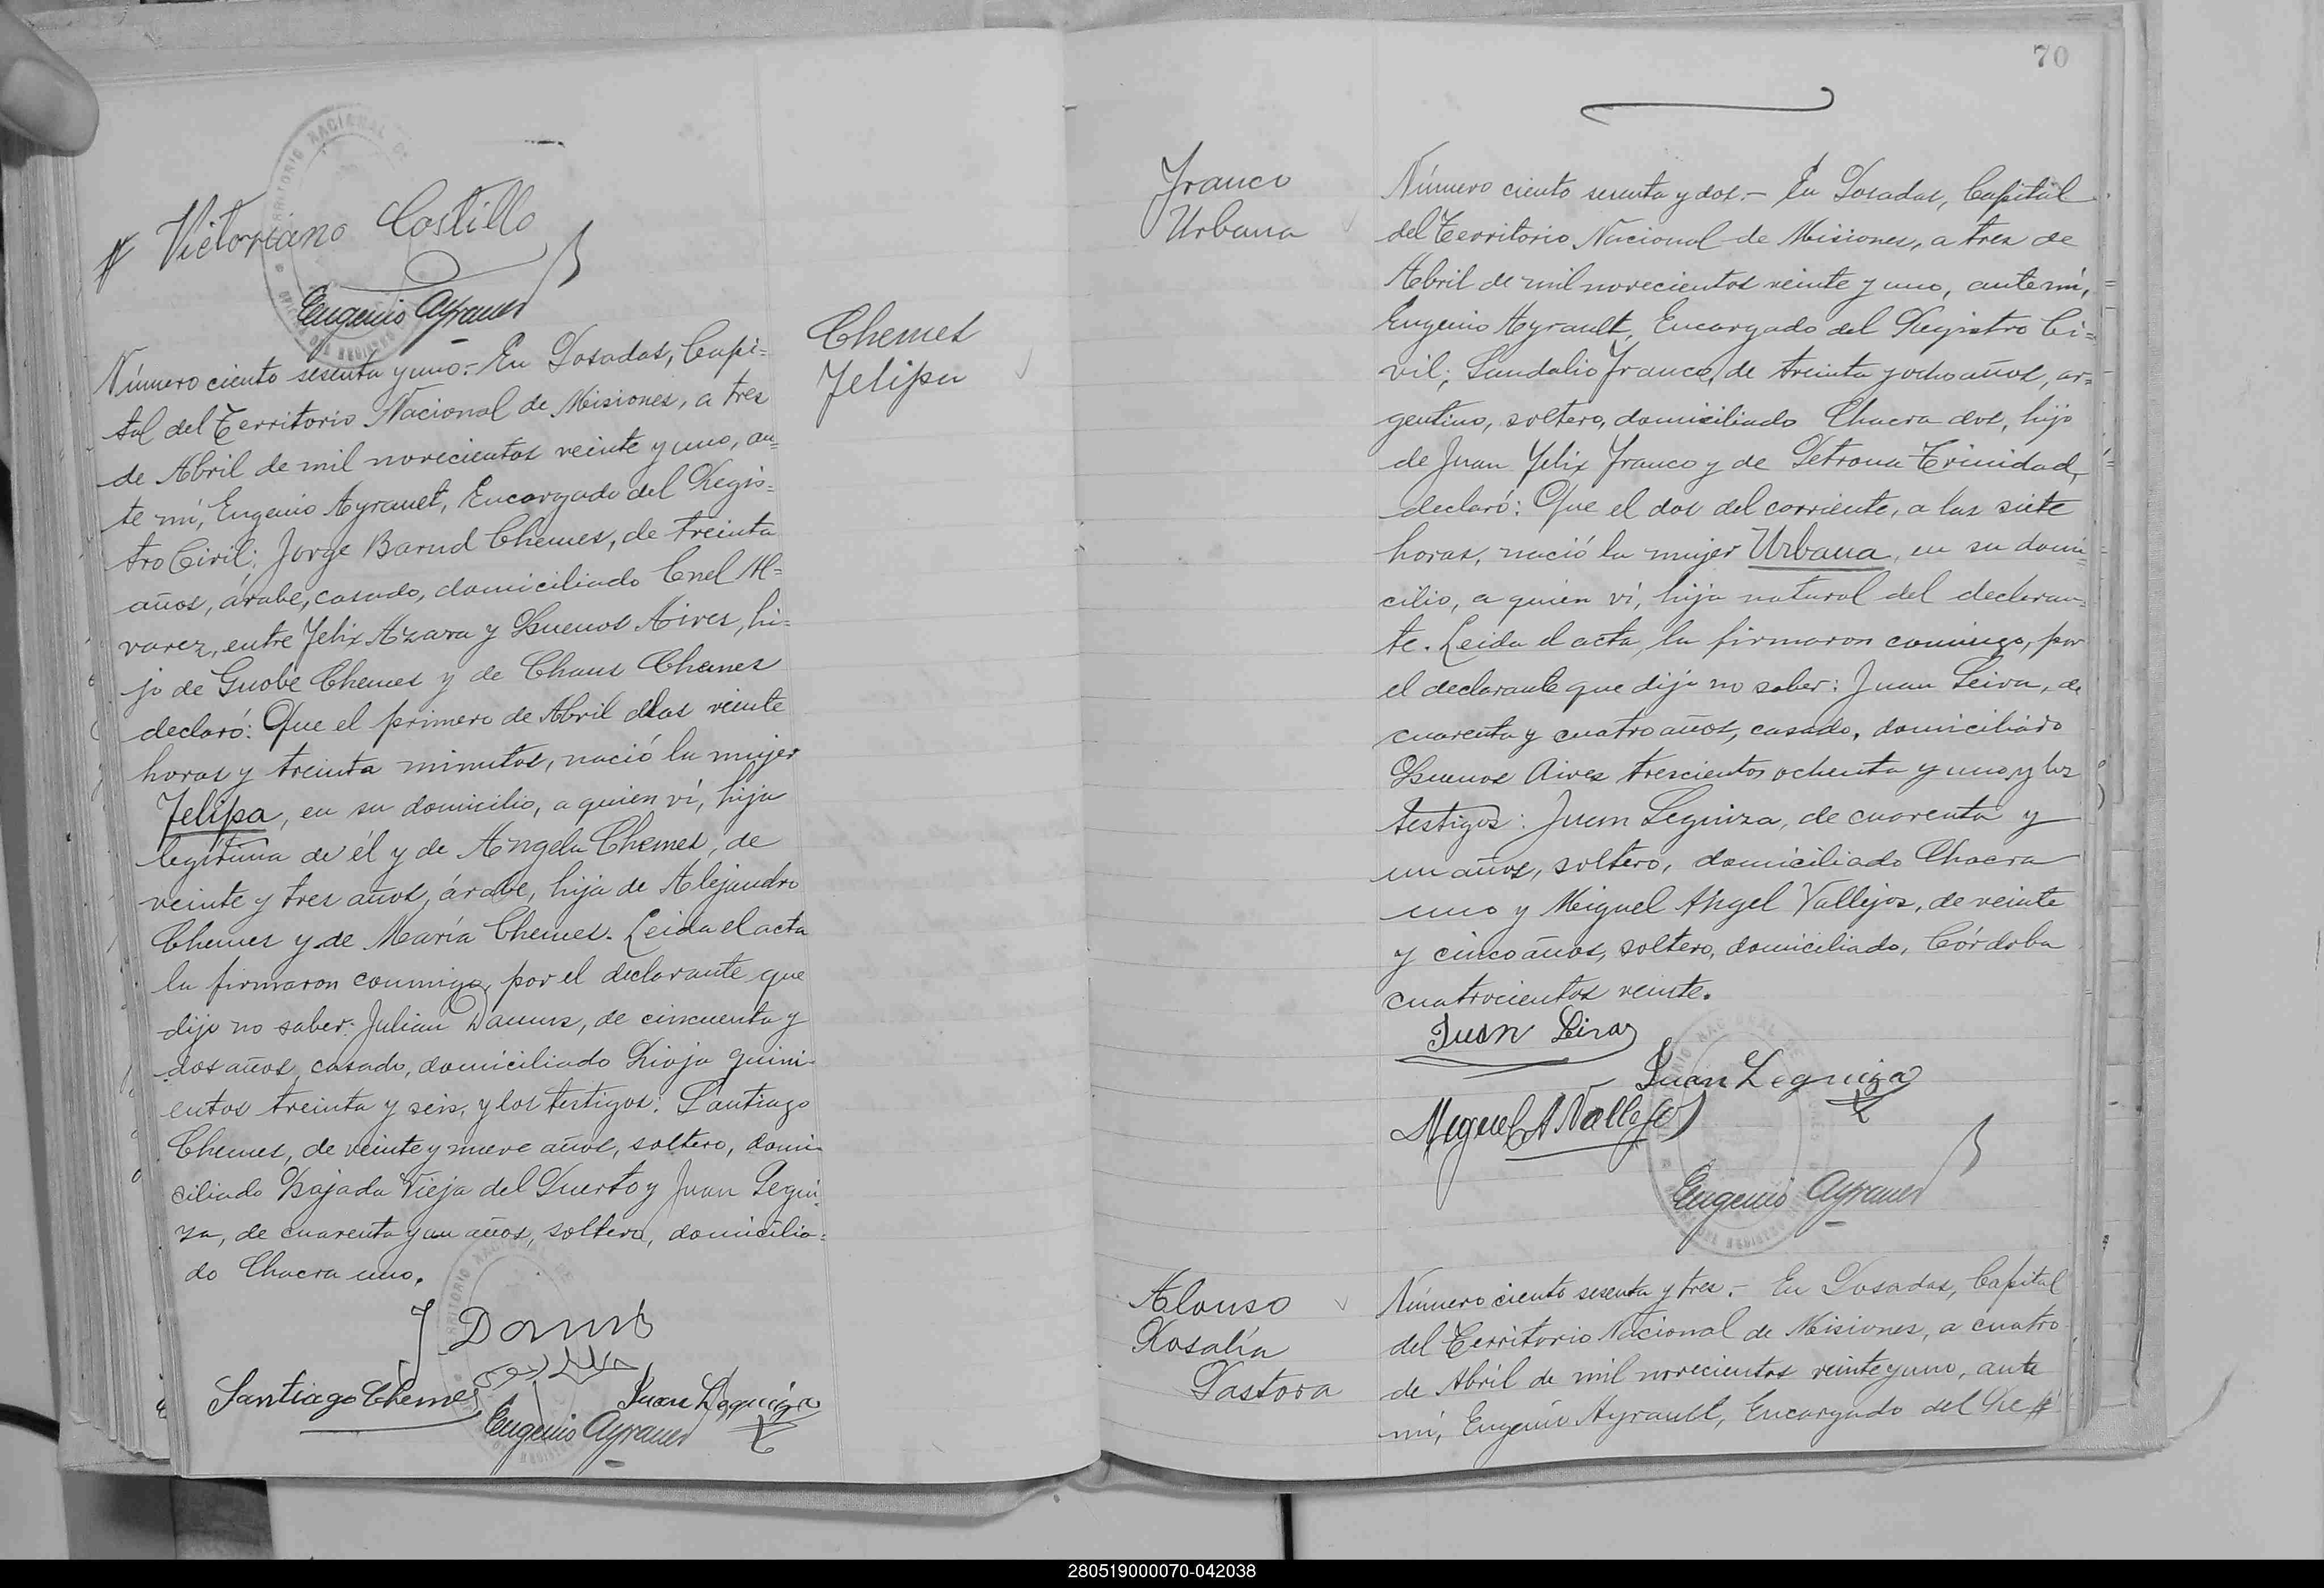 Victoriano Costillo
Eugenio Ayrault
Chemes
Felipa
Número ciento sesenta y uno.- En Posadas, Capi=
tal del Territorio Nacional de Misiones, a tres
de Abril de mil novecientos veinte y uno, an=
te mí, Eugenio Ayrault, Encargado del Regis=
tro Civil; Jorge Barud Chemes, de treinta
años, árabe, casado, domiciliado Cnel Al=
varez, entre Felix Azara y Buenos Aires, hi=
jo de Gnobe Chemes y de Chaus Chemes
declaró: Que el primero de Abril a las veinte
horas y treinta minutos, nació la mujer
Felipa, en su domicilio, a quien ví, hija
legítima de él y de Angela Chemes, de
veinte y tres años, árabe, hija de Alejandro
Chemes y de María Chemes. Leida el acta
la firmaron conmigo, por el declarante que
dijo no saber: Julian Danus, de cincuenta y
dos años, casado, domiciliado Rioja quini-
entos treinta y seis, y los testigos: Santiago
Chemes, de veinte y nueve años, soltero, domi-
ciliado Bajada Vieja del Puerto y Juan Legui-
za, de cuarenta y un años, soltero, domicilia=
do Chacra uno.
J Danus
Santiago Chemes
Juan Leguiza
Eugenio Ayrault
70
Franco
Urbana
Número ciento sesenta y dos.- En Posadas, Capital
del Territorio Nacional de Misiones, a tres de
Abril de mil novecientos veinte y uno, ante mí,
Eugenio Ayrault, Encargado del Registro Ci=
vil; Sandalio Franco, de treinta y ocho años, ar=
gentino, soltero, domiciliado Chacra dos, hijo
de Juan Felix Franco y de Petrona Trinidad,
declaró: Que el dos del corriente, a las siete
horas, nació la mujer Urbana, en su domi-
cilio, a quien ví, hija natural del declaran-
te. Leida el acta, la firmaron conmigo, por
el declarante que dijo no saber: Juan Leiva, de
cuarenta y cuatro años, casado, domiciliado
Buenos Aires trescientos ochenta y uno y los
testigos: Juan Leguiza, de cuarenta y
un años, soltero, domiciliado Chacra
uno y Miguel Angel Vallejos, de veinte
y cinco años, soltero, domiciliado, Córdoba
cuatrocientos veinte.
Juan Leiva
Juan Leguiza
Miguel A Vallejos
Eugenio Ayrault
Alonso
Rosalía
Pastora
Número ciento sesenta y tres.- En Posadas, Capital
del Territorio Nacional de Misiones, a cuatro
de Abril de mil novecientos veinte y uno, ante
mí, Eugenio Ayrault, Encargado del Re
280519000070-042038